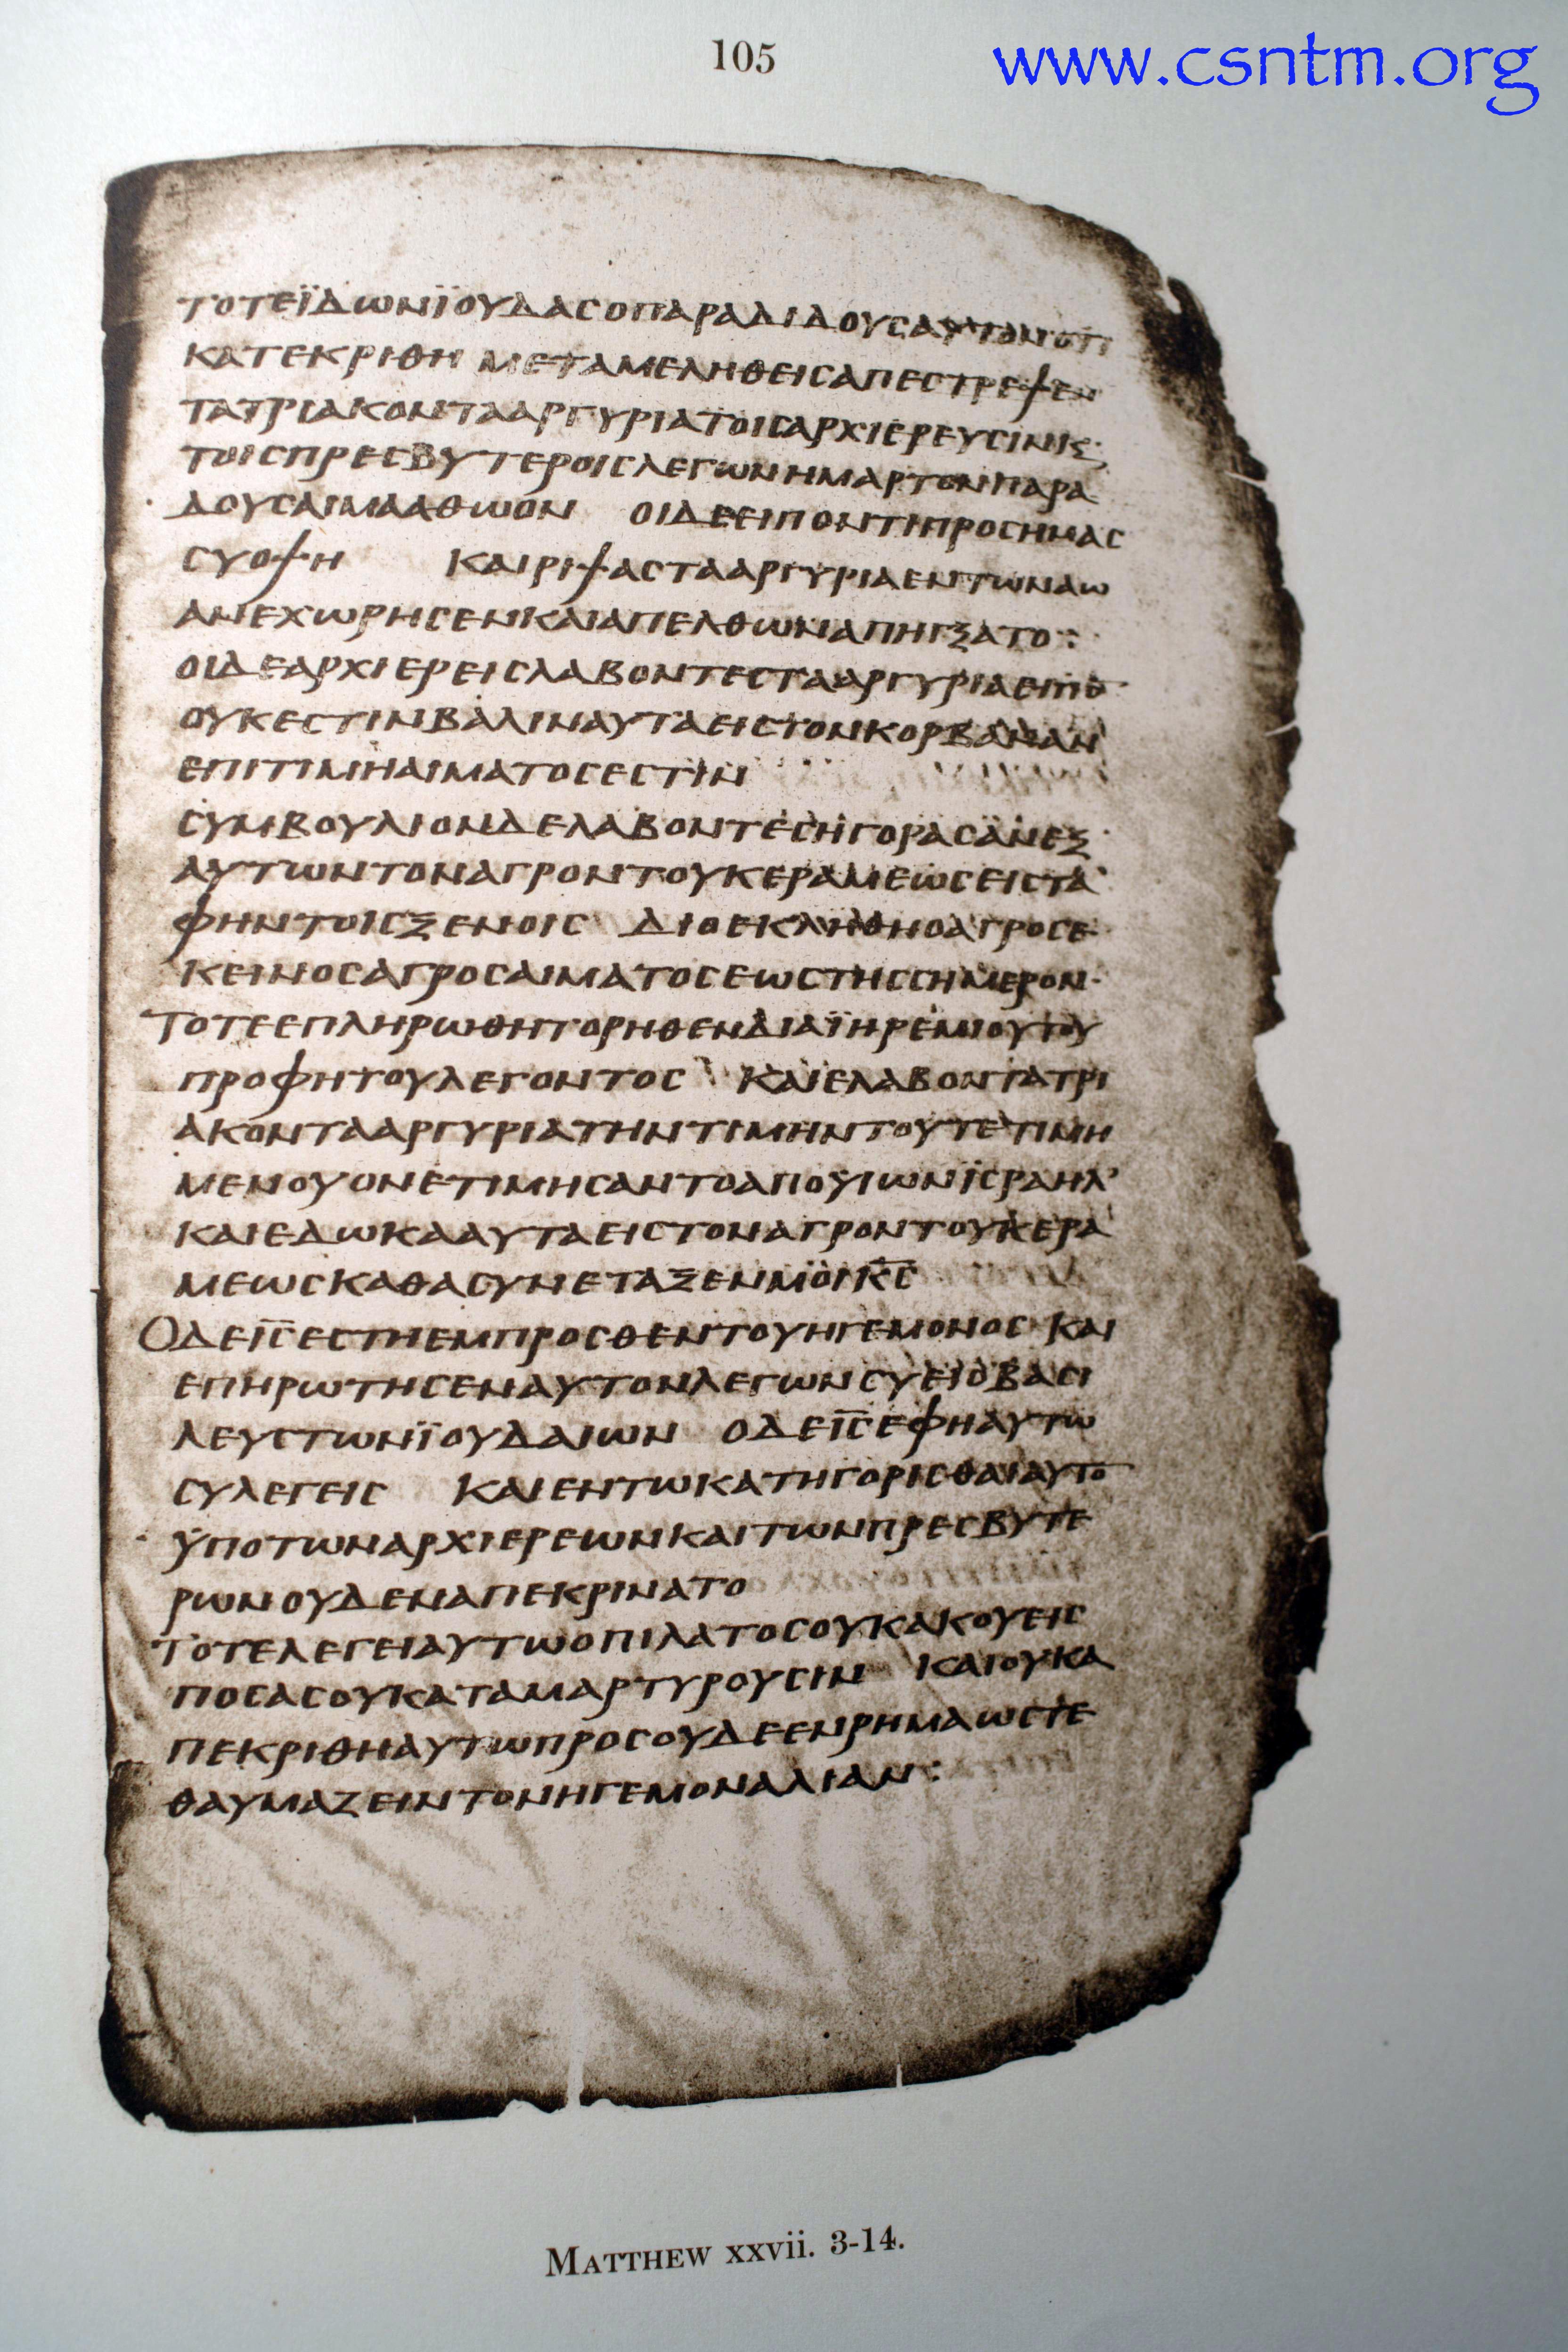 105
www.csntm.org
ΤΟΤΕΪΔΩΝΪΟΥΔΑϹΟΠΑΡΑΔΙΔΟΥϹΑΥΤΟΝΟΤΙ
ΚΑΤΕΚΡΙΘΗ ΜΕΤΑΜΕΛΗΘΕΙϹΑΠΕϹΤΡΕΨΕΝ
ΤΑΤΡΙΑΚΟΝΤΑΑΡΓΥΡΙΑΤΟΙϹΑΡΧΙΕΡΕΥϹΙΝΚϚ
ΤΟΙϹΠΡΕϹΒΥΤΕΡΟΙϹΛΕΓΩΝΗΜΑΡΤΟΝΠΑΡΑ
ΔΟΥϹΑΙΜΑΑΘΩΟΝ ΟΙΔΕΕΙΠΟΝΤΙΠΡΟϹΗΜΑϹ
ϹΥΟΨΗ ΚΑΙΡΙΨΑϹΤΑΑΡΓΥΡΙΑΕΝΤΩΝΑΩ
ΑΝΕΧΩΡΗϹΕΝΚΑΙΑΠΕΛΘΩΝΑΠΗΓΞΑΤΟ:
ΟΙΔΕΑΡΧΙΕΡΕΙϹΛΑΒΟΝΤΕϹΤΑΑΡΓΥΡΙΑΕΙΠΟ̅
ΟΥΚΕϹΤΙΝΒΑΛΙΝΑΥΤΑΕΙϹΤΟΝΚΟΡΒΑΝΑΝ
ΕΠΙΤΙΜΗΑΙΜΑΤΟϹΕϹΤΙΝ
ϹΥΜΒΟΥΛΙΟΝΔΕΛΑΒΟΝΤΕϹΗΓΟΡΑϹΑΝΕΞ
ΑΥΤΩΝΤΟΝΑΓΡΟΝΤΟΥΚΕΡΑΜΕΩϹΕΙϹΤΑ
ΦΗΝΤΟΙϹΞΕΝΟΙϹ ΔΙΟΕΚΛΗΘΗΟΑΓΡΟϹΕ
ΚΕΙΝΟϹΑΓΡΟϹΑΙΜΑΤΟϹΕΩϹΤΗϹϹΗΜΕΡΟΝ·
ΤΟΤΕΕΠΛΗΡΩΘΗΤΟΡΗΘΕΝΔΙΑΪΗΡΕΜΙΟΥΤΟΥ
ΠΡΟΦΗΤΟΥΛΕΓΟΝΤΟϹ ΚΑΙΕΛΑΒΟΝΤΑΤΡΙ
ΑΚΟΝΤΑΑΡΓΥΡΙΑΤΗΝΤΙΜΗΝΤΟΥΤΕΤΙΜΗ
ΜΕΝΟΥΟΝΕΤΙΜΗϹΑΝΤΟΑΠΟΥΙΩΝΪϹΡΑΗΛ
ΚΑΙΕΔΩΚΑΑΥΤΑΕΙϹΤΟΝΑΓΡΟΝΤΟΥΚΕΡΑ
ΜΕΩϹΚΑΘΑϹΥΝΕΤΑΞΕΝΜΟΙΚ̅Ϲ̅
ΟΔΕΙ̅Ϲ̅ΕϹΤΗΕΜΠΡΟϹΘΕΝΤΟΥΗΓΕΜΟΝΟϹ ΚΑΙ
ΕΠΗΡΩΤΗϹΕΝΑΥΤΟΝΛΕΓΩΝϹΥΕΙΟΒΑϹΙ
ΛΕΥϹΤΩΝΪΟΥΔΑΙΩΝ ΟΔΕΙ̅Ϲ̅ΕΦΗΑΥΤΩ
ϹΥΛΕΓΕΙϹ ΚΑΙΕΝΤΩΚΑΤΗΓΟΡΙϹΘΑΙΑΥΤΟ̅
ΫΠΟΤΩΝΑΡΧΙΕΡΕΩΝΚΑΙΤΩΝΠΡΕϹΒΥΤΕ
ΡΩΝΟΥΔΕΝΑΠΕΚΡΙΝΑΤΟ
ΤΟΤΕΛΕΓΕΙΑΥΤΩΟΠΙΛΑΤΟϹΟΥΚΑΚΟΥΕΙϹ
ΠΟϹΑϹΟΥΚΑΤΑΜΑΡΤΥΡΟΥϹΙΝ ΚΑΙΟΥΚΑ
ΠΕΚΡΙΘΗΑΥΤΩΠΡΟϹΟΥΔΕΕΝΡΗΜΑΩϹΤΕ
ΘΑΥΜΑΖΕΙΝΤΟΝΗΓΕΜΟΝΑΛΙΑΝ:
MATTHEW xxvii. 3-14.